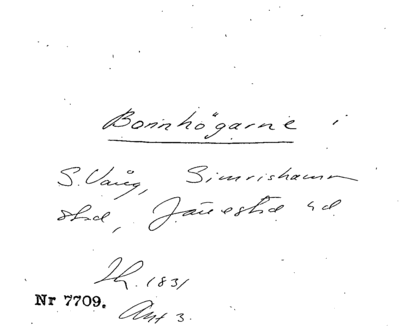 Bonnhögarne i
S. Vång, Simrishamn
stad, Järrestad hd
Lh. 1831
Nr 7709.
Ant 3.